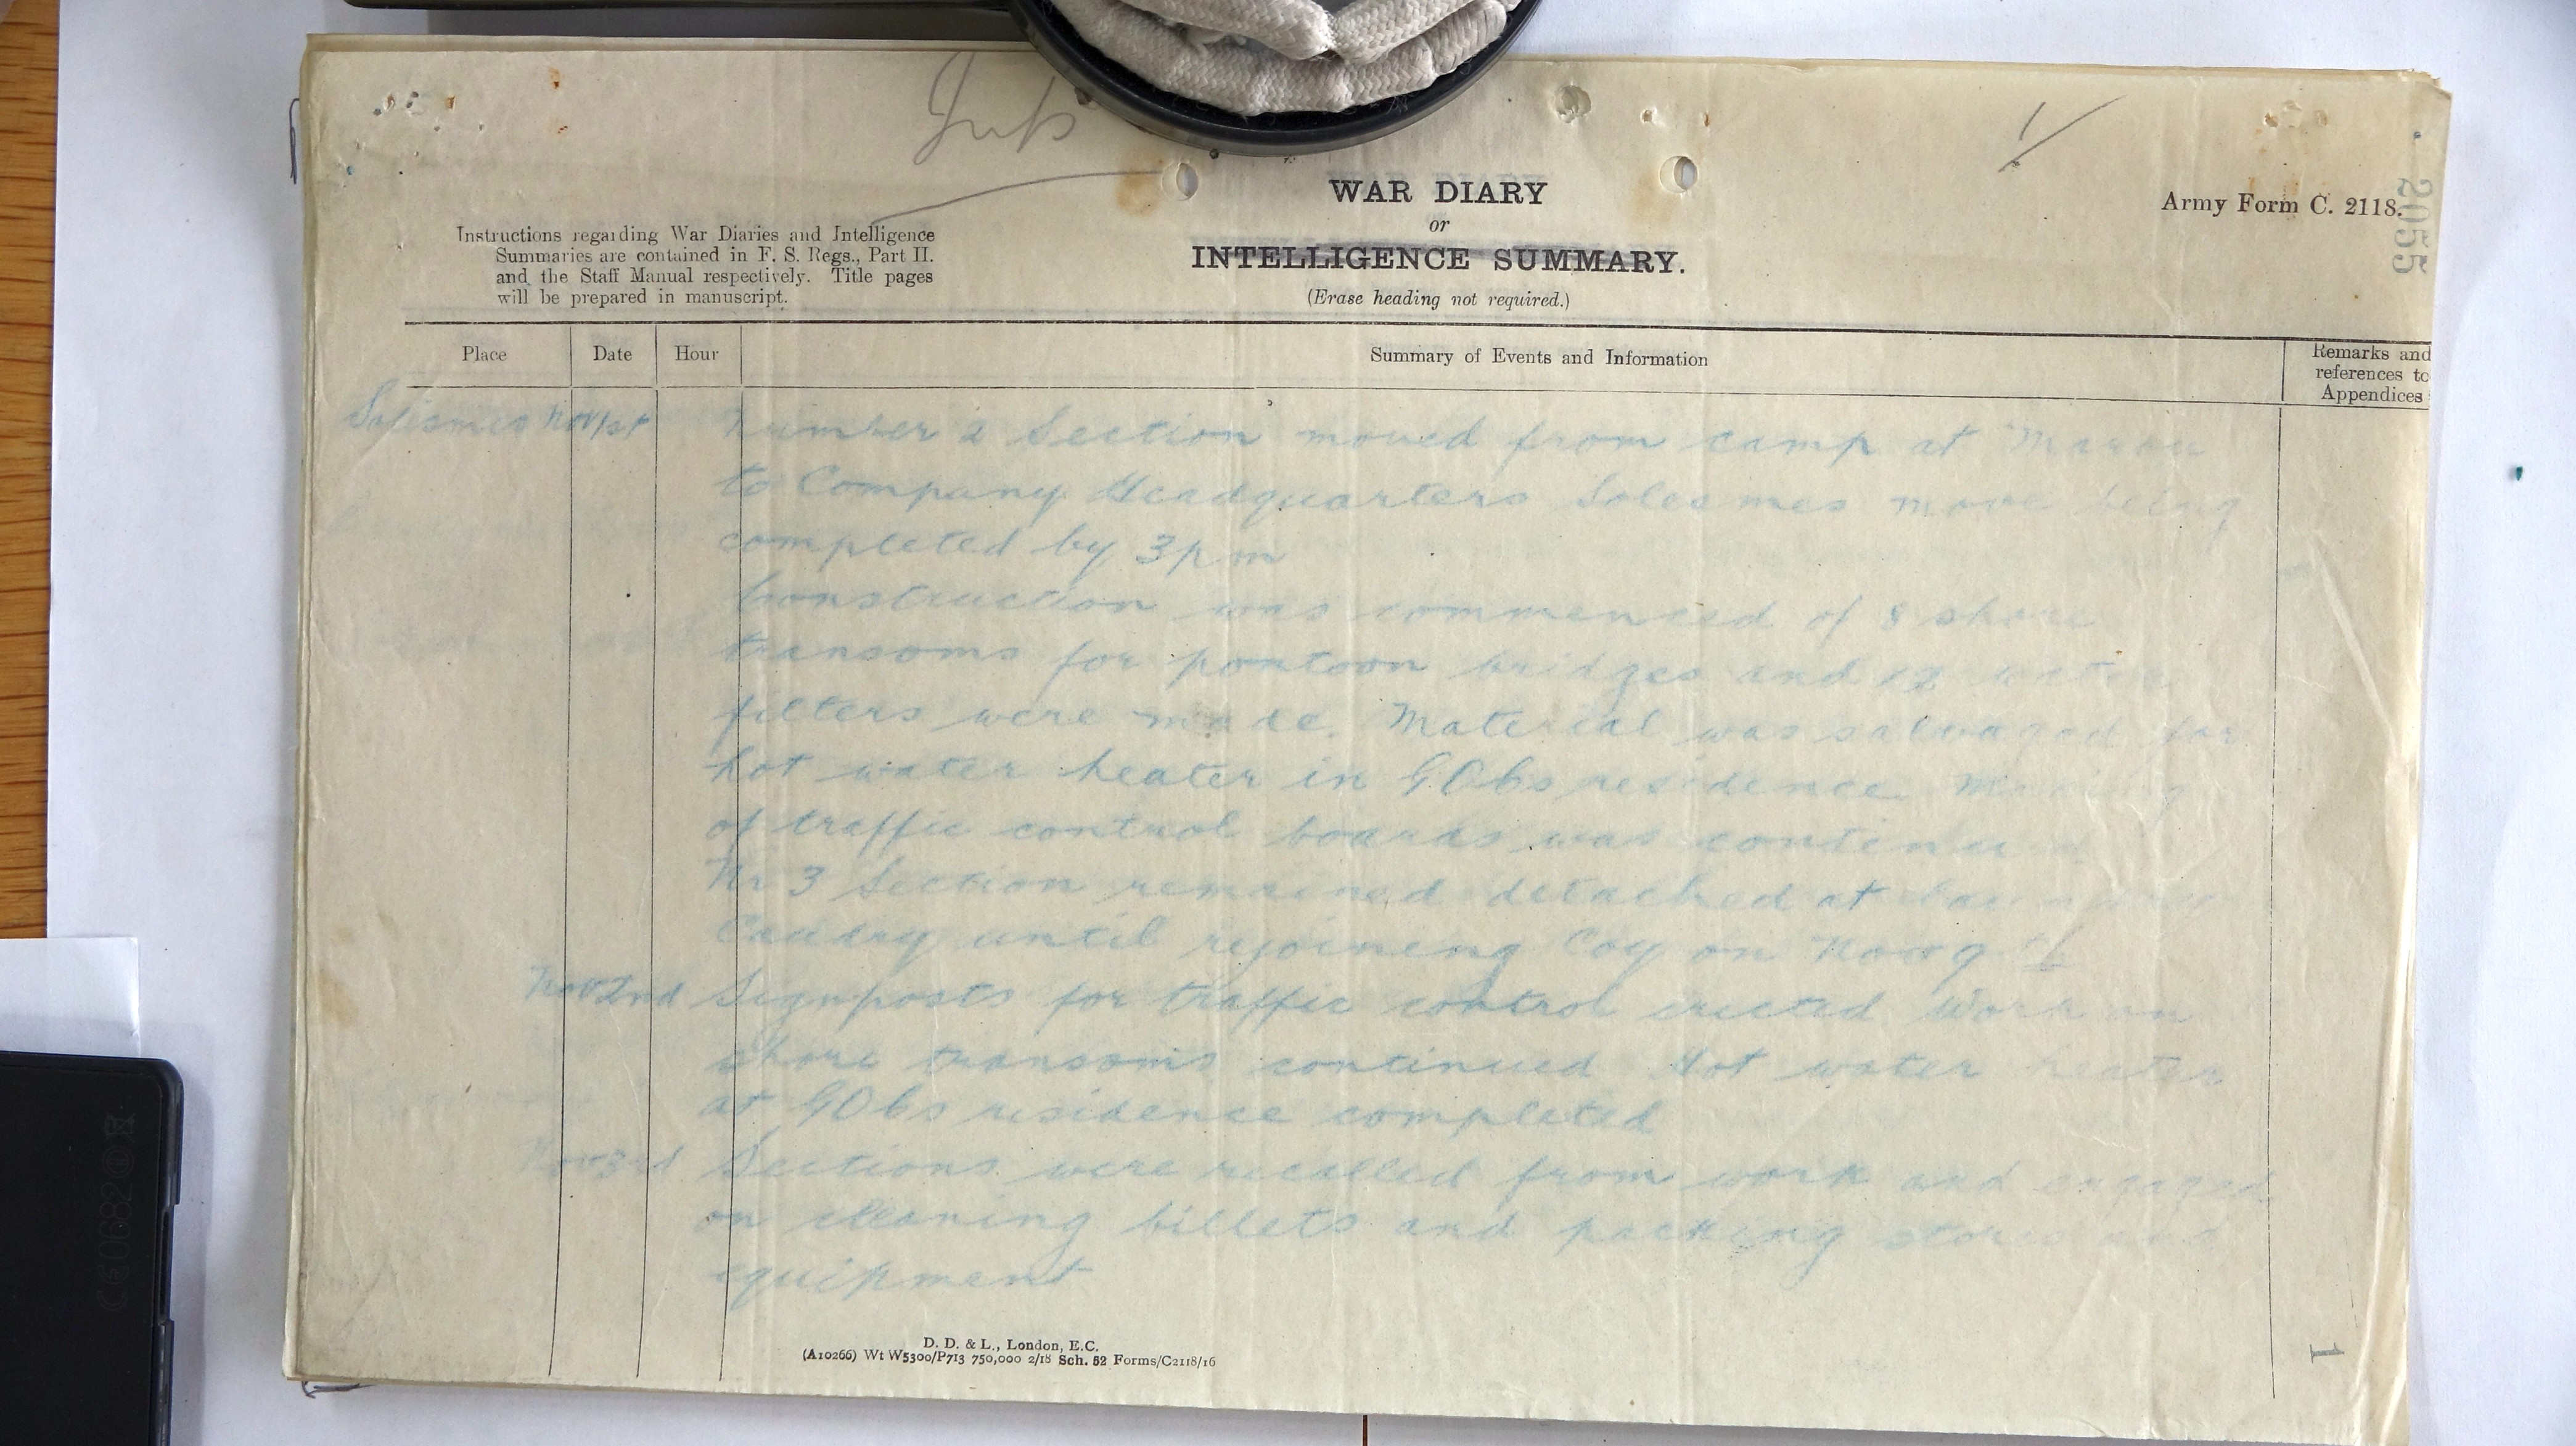 1/
Army Form C. 2118.
2055
WAR DIARY
or
INTELLIGENCE SUMMARY.
(Erase heading not required.)
Instructions regarding War Diaries and Intelligence
Summaries are contained in F. S. Regs., Part II.
and the Staff Manual respectively. Title pages
will be prepared in manuscript.
Place Date Hour Summary of Events and Information Remarks and
references to
Appendices
Solesmes Nov 1st Number 2 Section moved from camp at
to Company Headquarters Solesmes move being
completed by 3pm
Construction was commenced of 8 shore
transoms for pontoon bridges and 12 water
filters were made. Material was salvaged for
hot water heater in GOCs residence
of traffic control boards was continued
Nr 3 Section remained detached at
Caudry until rejoining Coy on Nov 9th
Nov 2nd Signposts for traffic control erected Work on
shore transoms continued Hot water heater
at GOCs residence completed
Nov 3rd Sections were recalled from work and engaged
on cleaning billets and packing stores and
equipment
D. D. & L., London, E.C.
(A10266) Wt W5300/P713 750,000 2/18 Sch. 52 Forms/C2118/16
1